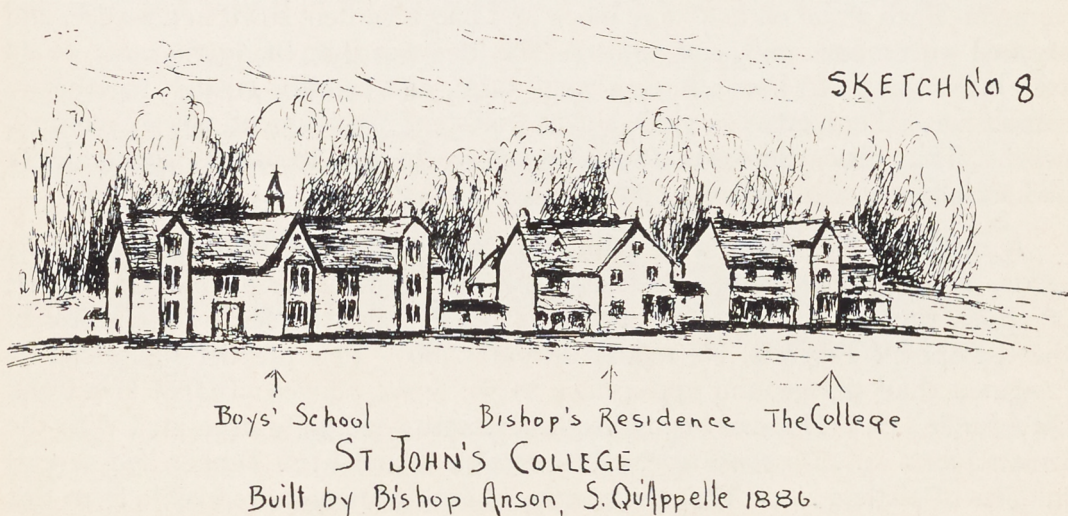 SKETCH No 8
Boys' School Bishop's Residence The College
ST JOHN'S COLLEGE
Built by Bishop Anson, S. Qu'Appelle 1886.